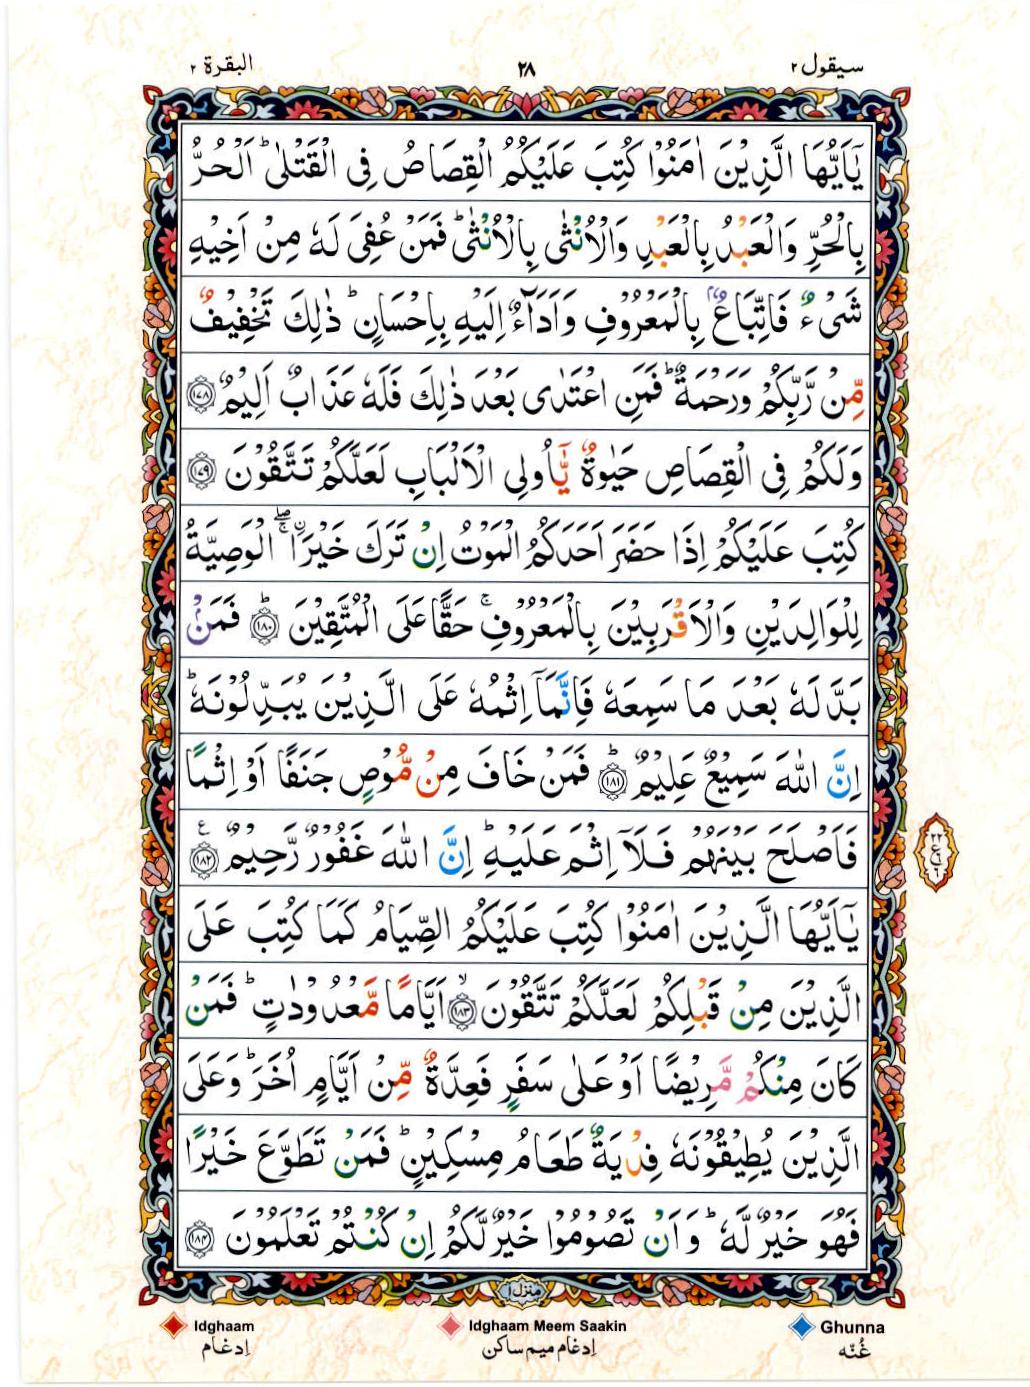 سيقول ٢
٢٨
البقرة ٢
يٰٓاَيُّهَا الَّذِيْنَ اٰمَنُوْا كُتِبَ عَلَيْكُمُ الْقِصَاصُ فِى الْقَتْلٰىؕ اَلْحُرُّ
بِالْحُرِّ وَالْعَبْدُ بِالْعَبْدِ وَالْاُنْثٰى بِالْاُنْثٰىؕ فَمَنْ عُفِىَ لَهٗ مِنْ اَخِيْهِ
شَىْءٌ فَاتِّبَاعٌۢ بِالْمَعْرُوْفِ وَاَدَآءٌ اِلَيْهِ بِاِحْسَانٍؕ ذٰلِكَ تَخْفِيْفٌ
مِّنْ رَّبِّكُمْ وَرَحْمَةٌؕ فَمَنِ اعْتَدٰى بَعْدَ ذٰلِكَ فَلَهٗ عَذَابٌ اَلِيْمٌ ١٧٨
وَلَكُمْ فِى الْقِصَاصِ حَيٰوةٌ يّٰٓاُولِى الْاَلْبَابِ لَعَلَّكُمْ تَتَّقُوْنَ ١٧٩
كُتِبَ عَلَيْكُمْ اِذَا حَضَرَ اَحَدَكُمُ الْمَوْتُ اِنْ تَرَكَ خَيْرَاۖۚ اۨلْوَصِيَّةُ
لِلْوَالِدَيْنِ وَالْاَقْرَبِيْنَ بِالْمَعْرُوْفِۚ حَقًّا عَلَى الْمُتَّقِيْنَؕ ١٨٠ فَمَنْۢ
بَدَّلَهٗ بَعْدَ مَا سَمِعَهٗ فَاِنَّمَآ اِثْمُهٗ عَلَى الَّذِيْنَ يُبَدِّلُوْنَهٗؕ
اِنَّ اللّٰهَ سَمِيْعٌ عَلِيْمٌؕ ١٨١ فَمَنْ خَافَ مِنْ مُّوْصٍ جَنَفًا اَوْ اِثْمًا
فَاَصْلَحَ بَيْنَهُمْ فَلَآ اِثْمَ عَلَيْهِؕ اِنَّ اللّٰهَ غَفُوْرٌ رَّحِيْمٌ ١٨٢ ع
يٰٓاَيُّهَا الَّذِيْنَ اٰمَنُوْا كُتِبَ عَلَيْكُمُ الصِّيَامُ كَمَا كُتِبَ عَلَى
الَّذِيْنَ مِنْ قَبْلِكُمْ لَعَلَّكُمْ تَتَّقُوْنَۙ ١٨٣ اَيَّامًا مَّعْدُوْدٰتٍؕ فَمَنْ
كَانَ مِنْكُمْ مَّرِيْضًا اَوْ عَلٰى سَفَرٍ فَعِدَّةٌ مِّنْ اَيَّامٍ اُخَرَؕ وَعَلَى
الَّذِيْنَ يُطِيْقُوْنَهٗ فِدْيَةٌ طَعَامُ مِسْكِيْنٍؕ فَمَنْ تَطَوَّعَ خَيْرًا
فَهُوَ خَيْرٌ لَّهٗؕ وَاَنْ تَصُوْمُوْا خَيْرٌ لَّكُمْ اِنْ كُنْتُمْ تَعْلَمُوْنَ ١٨٤
منزل ١
Ghunna
غُنّه
Idghaam Meem Saakin
اِدغام میم ساکن
Idghaam
اِدغام